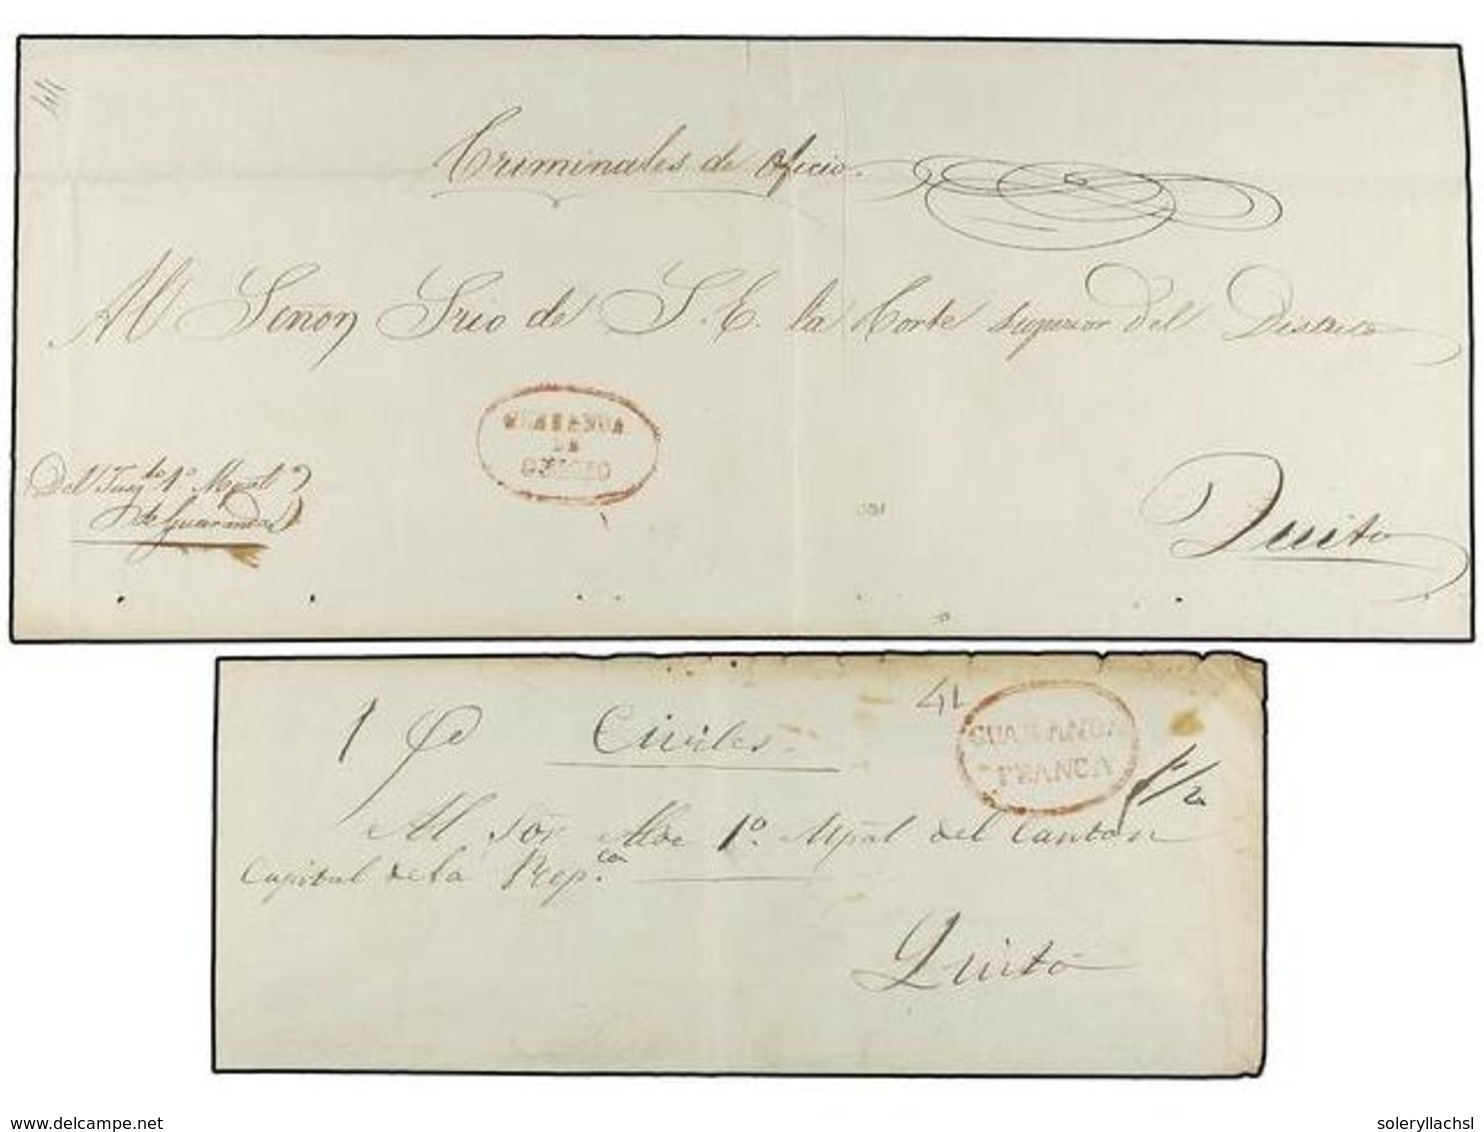 Criminales de oficio.
Al Señor Srio de S. E. la Corte Superior del Distrito
GUARANDA
DE
OFICIO
Del Juzgdo 1º Mpal
de Guaranda
Quito
41
GUARANDA
FRANCA
Civiles.
Al Sor Alde 1º Mpal del Canton
Capital de la Repca.
Quito
www.delcampe.net
soleryllachsl